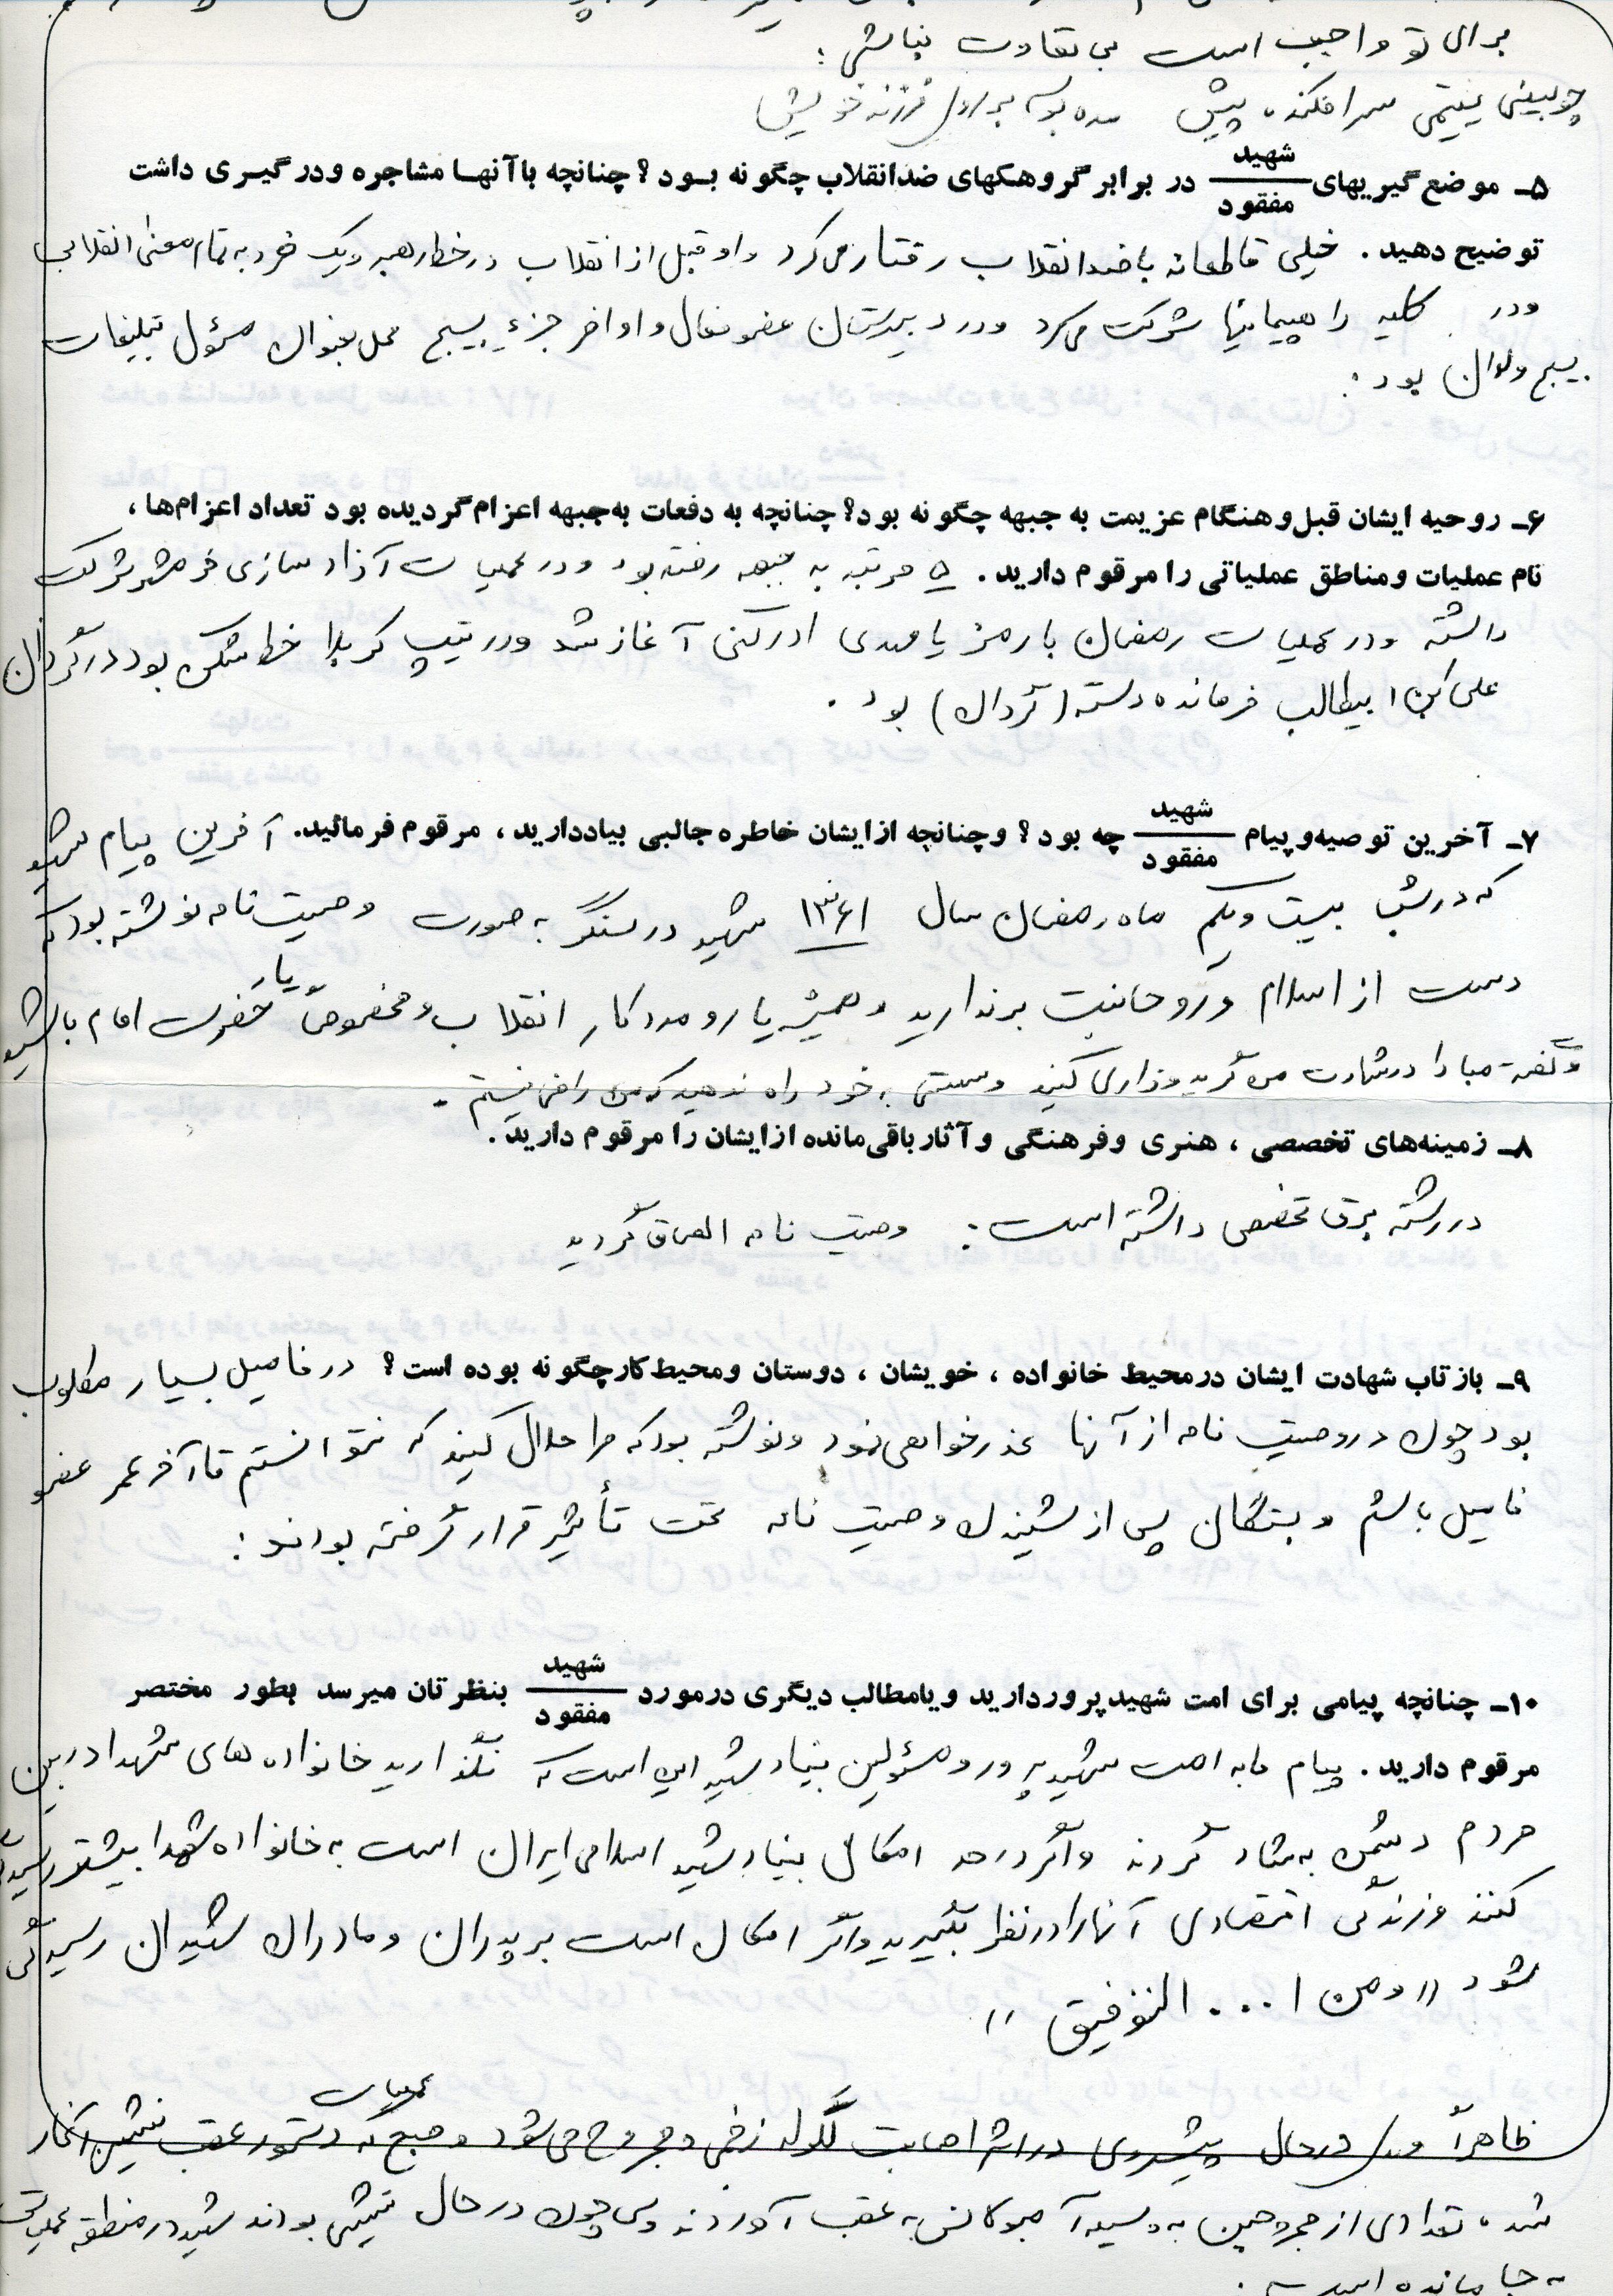 برای تو واجب است بی تفاوت نباشی :
چو بینی یتیمی سرافکنده پیش مده بوسه بر روی فرزند خویش
۵ـ موضع گیریهای شهید / مفقود در برابر گروهکهای ضدانقلاب چگونه بود ؟ چنانچه باآنها مشاجره ودرگیری داشت
توضیح دهید . خیلی قاطعانه با ضدانقلاب رفتار می کرد و او قبل از انقلاب در خط رهبر و یک فرد به تمام معنی انقلابی
ودر کلیه راهپیمائیها شرکت می کرد ودر دبیرستان عضو فعال و اواخر جزء بسیج محل بعنوان مسؤل تبلیغات
بسیج ولوان بود :
۶ـ روحیه ایشان قبل وهنگام عزیمت به جبهه چگونه بود؟ چنانچه به دفعات به جبهه اعزام گردیده بود تعداد اعزام‌ها ،
نام عملیات ومناطق عملیاتی را مرقوم دارید . ۵ مرتبه به جبهه رفته بود ودر عملیات آزاد سازی خرمشهر شرکت
داشته ودر عملیات رمضان با رمز یا مهدی ادرکنی آغاز شد ودر تیپ کربلا خط شکن بود در گردان
علی ابن ابیطالب فرمانده دسته ( گردان ) بود .
۷ـ آخرین توصیه‌وپیام شهید / مفقود چه بود ؟ وچنانچه ازایشان خاطره جالبی بیاددارید ، مرقوم فرمائید. آخرین پیام شهید
که در شب بیست ویکم ماه رمضان سال ۱۳۶۱ شهید در سنگر به صورت وصیت نامه نوشته بود که
دست از اسلام و روحانیت برندارید و همیشه یار و مددکار انقلاب و مخصوصاً یار حضرت امام باشید
و گفت مبادا در شهادت من گریه وزاری کنید وسستی به خود راه ندهید که من راضی نیستم .
۸ـ زمینه‌های تخصصی ، هنری وفرهنگی وآثارباقی‌مانده ازایشان را مرقوم دارید .
در رشته برق تخصصی داشته است : وصیت نامه الصاق گردید
۹ـ بازتاب شهادت ایشان درمحیط خانواده ، خویشان ، دوستان ومحیط کارچگونه بوده است ؟ در فامیل بسیار مطلوب
بود چون در وصیت نامه از آنها عذر خواهی نمود ونوشته بود که مرا حلال کنید که نتوانستم تا آخر عمر عضو
فامیل باشم و بستگان پس از شنیدن وصیت نامه تحت تأثیر قرار گرفته بودند :
۱۰ـ چنانچه پیامی برای امت شهیدپروردارید ویامطالب دیگری درمورد شهید / مفقود بنظرتان میرسد بطور مختصر
مرقوم دارید . پیام ما به امت شهید پرور و مسئولین بنیاد شهید این است که نگذارید خانواده های شهدا در بین
مردم دشمن به شاد گردند واگر در حد امکان بنیاد شهید اسلامی ایران است به خانواده شهدا بیشتر رسیدگی
کنند و زندگی اقتصادی آنها را در نظر بگیرید واگر امکان است بر پدران و مادران شهیدان رسیدگی
شود " ومن ا... التوفیق "
ظاهراً در حال پیشروی در اثر اصابت گلوله زخمی و مجروح می شود و صبح که دستور عقب نشینی عملیات آغاز
شده تعدادی از مجروحین به وسیله آمبولانس به عقب آوردند ولی چون در حال نشینی بودند شهید در منطقه عملیاتی
به جا مانده است .